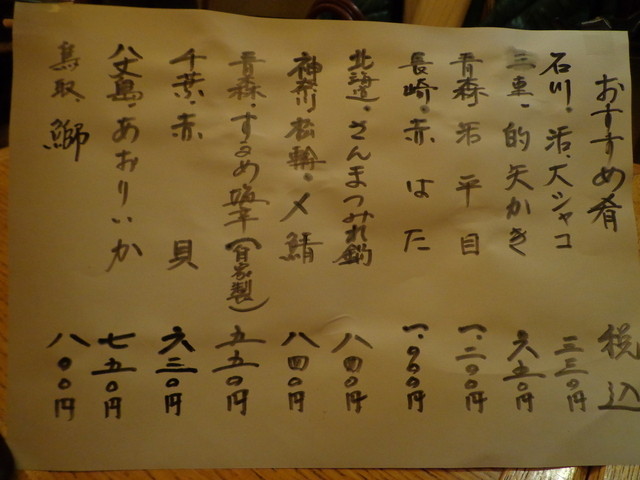 おすすめ肴 税込
石川・活・大シャコ 三三〇円
三重・的矢かき 六五〇円
青森 活平目 一、二〇〇円
長崎・赤はた 一、〇〇〇円
北海道・さんまつみれ鍋 八四〇円
神奈川 松輪・〆鯖 八四〇円
青森・するめ塩辛(自家製) 五五〇円
千葉・赤貝 六三〇円
八丈島・あおりいか 七五〇円
鳥取・鰤 八〇〇円